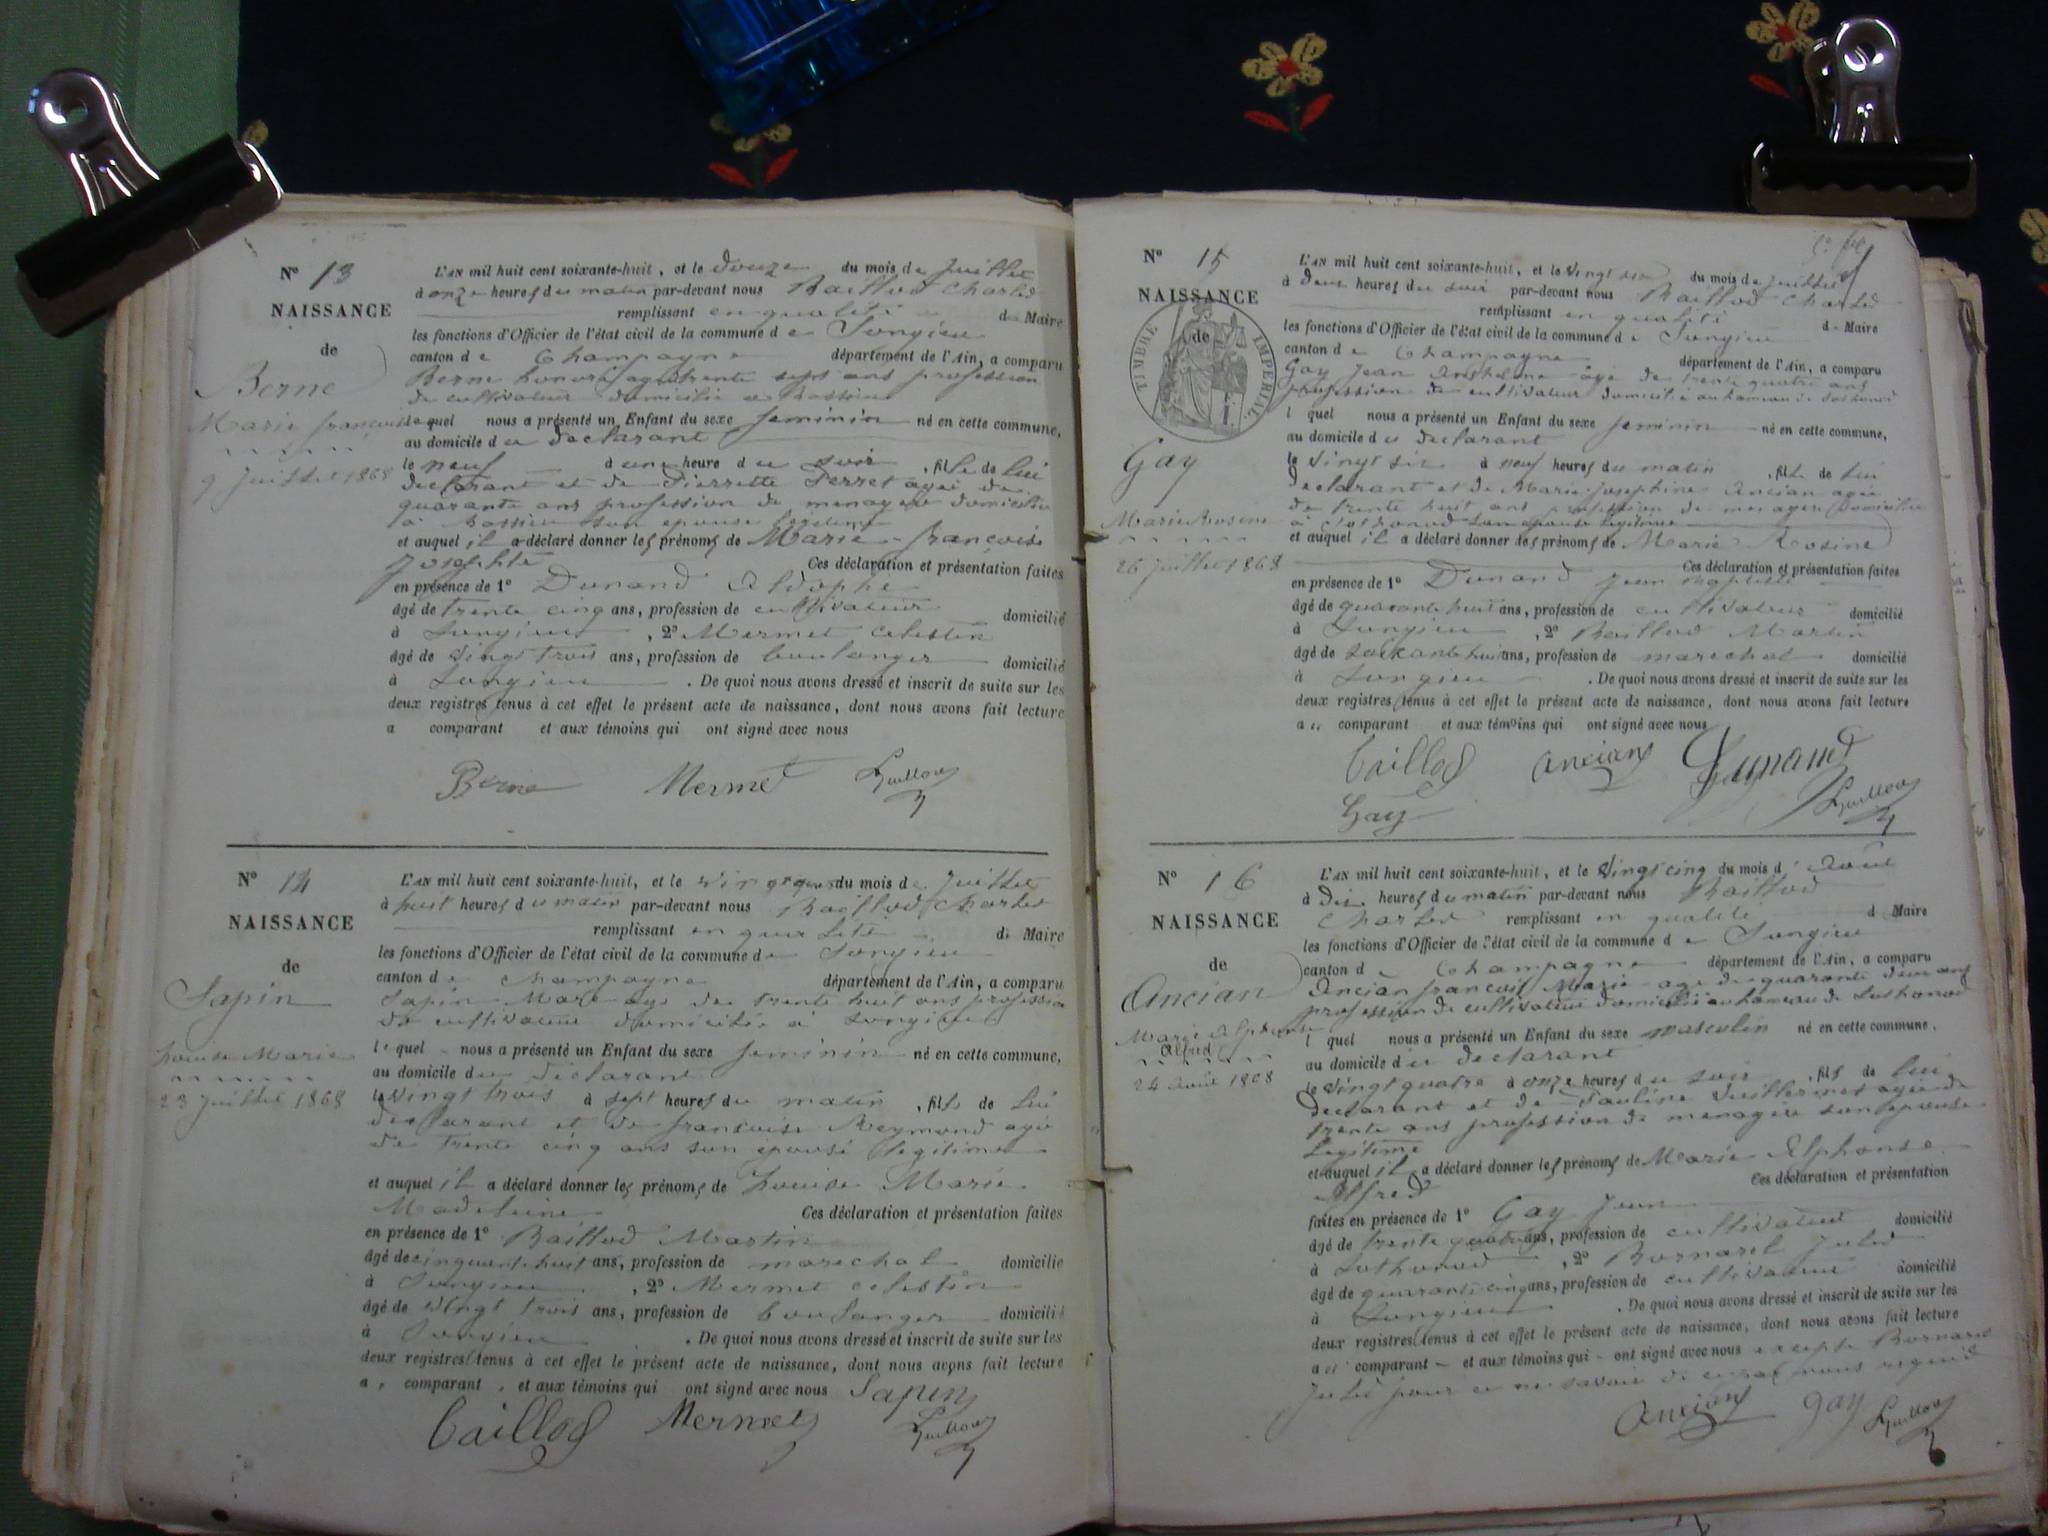 N° 13
NAISSANCE
de
Berne
Marie françoise
9 Juillet 1868
L'AN mil huit cent soixante-huit, et le douze du mois de Juillet
à onze heures du matin par-devant nous Baillod Charles
remplissant en qualité de Maire
les fonctions d'Officier de l'état civil de la commune de Songieu
canton de Champagne département de l'Ain, a comparu
Berne honoré agé trente sept ans profession
de cultivateur domicilié a Bassieu
lequel nous a présenté un Enfant du sexe feminin né en cette commune,
au domicile du declarant
le neuf à une heure du soir, fille de lui
declarant et de Pierrette Perret agée de
quarante ans profession de menagere domiciliée
à Bassieu son epouse legitime
et auquel il a déclaré donner les prénoms de Marie françoise
Josephte Ces déclaration et présentation faites
en présence de 1° Dunand Aldophe
âgé de trente cinq ans, profession de cultivateur domicilié
à Songieu, 2° Mermet Celestin
âgé de vingt trois ans, profession de boulanger domicilié
à Songieu. De quoi nous avons dressé et inscrit de suite sur les
deux registres tenus à cet effet le présent acte de naissance, dont nous avons fait lecture
a comparant et aux témoins qui ont signé avec nous
Berne Mermet
N° 14
NAISSANCE
de
Sapin
Louise Marie
23 Juillet 1868
L'AN mil huit cent soixante-huit, et le du mois de Juillet
à huit heures du matin par-devant nous Baillod Charles
remplissant en qualité de Maire
les fonctions d'Officier de l'état civil de la commune de Songieu
canton de Champagne département de l'Ain, a comparu
Sapin Marc agé de trente huit ans profession
de cultivateur domicilié à Songieu
lequel nous a présenté un Enfant du sexe feminin né en cette commune,
au domicile du declarant
le vingt trois à sept heures du matin, fille de lui
declarant et de francoise Reymond agée
de trente cinq ans son épouse legitime
et auquel il a déclaré donner les prénoms de Louise Marie
Madeleine Ces déclaration et présentation faites
en présence de 1° Baillod Martin
âgé de cinquante huit ans, profession de marechal domicilié
à Songieu, 2° Mermet celestin
âgé de vingt trois ans, profession de boulanger domicilié
à Songieu. De quoi nous avons dressé et inscrit de suite sur les
deux registres tenus à cet effet le présent acte de naissance, dont nous avons fait lecture
a comparant, et aux témoins qui ont signé avec nous Sapin
Baillod Mermet
N° 15
NAISSANCE
de
TIMBRE IMPÉRIAL
Gay
Marie Rosine
26 Juillet 1868
L'AN mil huit cent soixante-huit, et le vingt six du mois de Juillet
à deux heures du soir par-devant nous Baillod Charles
remplissant en qualité de Maire
les fonctions d'Officier de l'état civil de la commune de Songieu
canton de Champagne département de l'Ain, a comparu
Gay Jean Anthelme âgé de trente quatre ans
profession de cultivateur domicilié au hameau de Sothonod
l quel nous a présenté un Enfant du sexe feminin né en cette commune,
au domicile du declarant
le vingt six à neuf heures du matin, fille de lui
declarant et de Marie Josephine Ancian agée
de trente huit ans profession de menagere domiciliée
à Sothonod son epouse legitime
et auquel il a déclaré donner les prénoms de Marie Rosine
Ces déclaration et présentation faites
en présence de 1° Dunand Jean Baptiste
âgé de quarante huit ans, profession de cultivateur domicilié
à Songieu, 2° Baillod Martin
âgé de soixante huit ans, profession de marechal domicilié
à Songieu. De quoi nous avons dressé et inscrit de suite sur les
deux registres tenus à cet effet le présent acte de naissance, dont nous avons fait lecture
a comparant et aux témoins qui ont signé avec nous
Baillod Ancian Dunand
Gay
N° 16
NAISSANCE
de
Ancian
Marie Alphonse
Alfred
24 Août 1868
L'AN mil huit cent soixante-huit, et le vingt cinq du mois d'Août
à dix heures du matin par-devant nous Baillod
Charles remplissant en qualité d Maire
les fonctions d'Officier de l'état civil de la commune de Songieu
canton d Champagne département de l'Ain, a comparu
Ancian francois Marie age de quarante deux ans
profession de cultivateur domicilié au hameau de Sothonod
l quel nous a présenté un Enfant du sexe masculin né en cette commune.
au domicile du declarant
le vingt quatre à onze heures du soir, fils de lui
declarant et de Pauline Vuillermet agée de
trente ans profession de menagère son epouse
Legitime
et auquel il a déclaré donner les prénoms de Marie Alphonse
Alfred Ces déclaration et présentation
faites en présence de 1° Gay Jean
âgé de trente quatre ans, profession de cultivateur domicilié
à Sothonod, 2° Bornarel Jules
âgé de quarante cinq ans, profession de cultivateur domicilié
à Songieu. De quoi nous avons dressé et inscrit de suite sur les
deux registres tenus à cet effet le présent acte de naissance, dont nous avons fait lecture
au comparant et aux témoins qui ont signé avec nous excepté Bornarel
Jules pour ne savoir de ce par nous requis
Ancian Gay